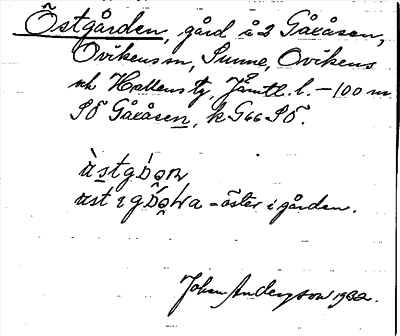 Östgården, gård å 2 Gåxåsen,
Ovikens sn, Sunne, Ovikens
och Hallens tg, Jämtl. l. – 100 m
SÖ Gåxåsen, k G66 SÖ.
öster i gården.
Johan Anderzson 1932.